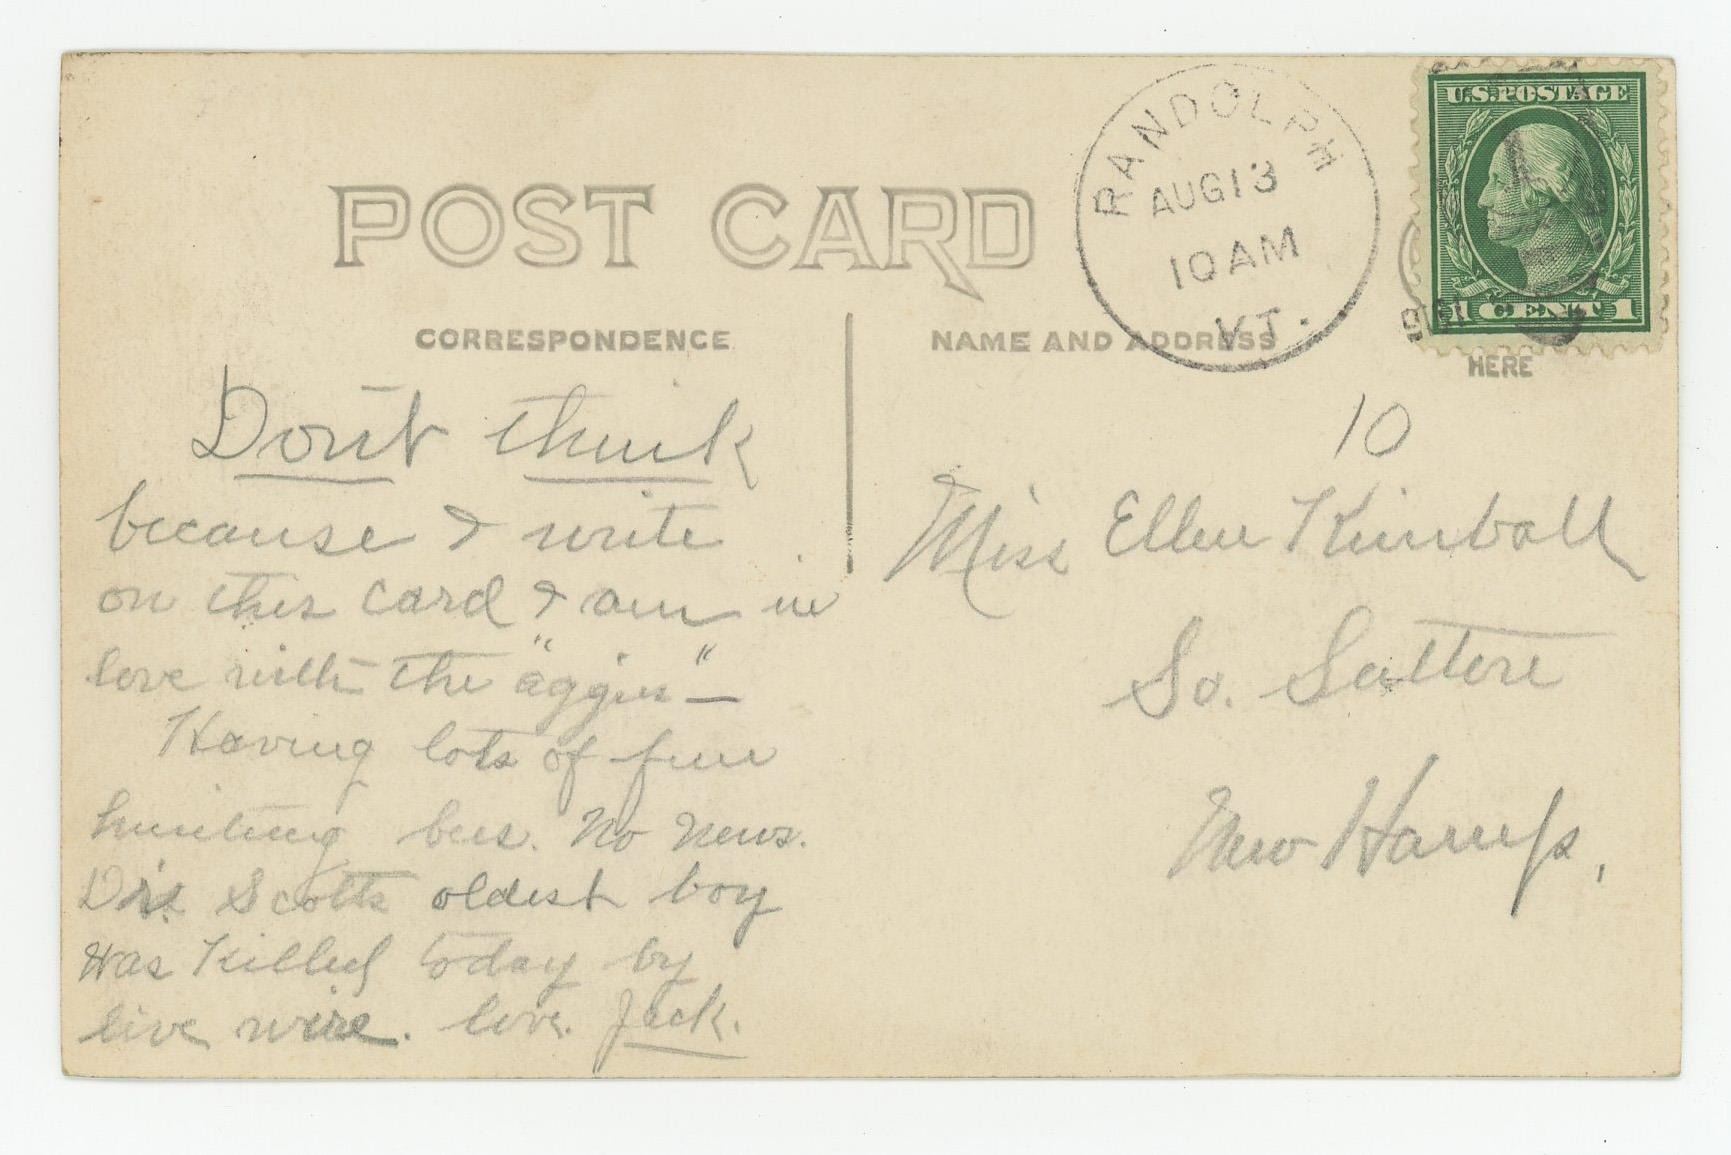 POST CARD
RANDOLPH
AUG 13
10 AM
VT.
U.S. POSTAGE
1 CENT 1
HERE
CORRESPONDENCE
NAME AND ADDRESS
Don't think
because I write
on this card I am in
love with the "aggies" —
Having lots of fun
hunting bees. No news.
Drs Scotts oldest boy
was killed today by
live wire. love. Jack.
10
Miss Ellen Kimball
So.
New Hamps.